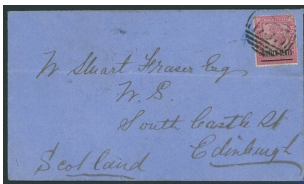 W Stuart Fraser Esq
W. S.
South Castle St
Edinburgh
Scotland